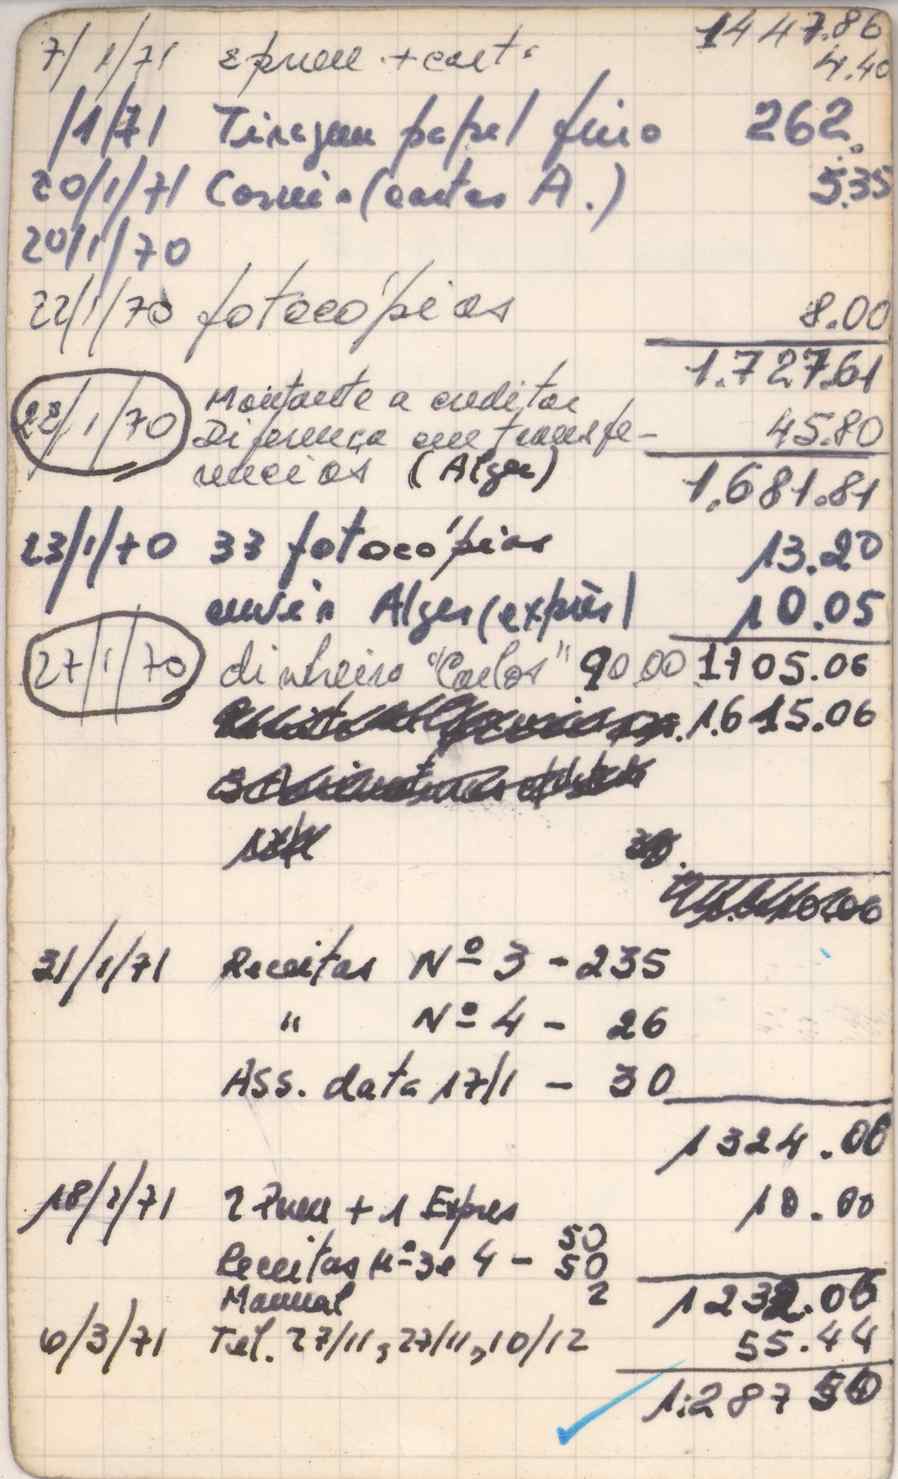 1447.86
7/1/71 + cart. 4.40
/1/71 Tiragem papel fino 262.
20/1/71 Correio (cartas A.) 5.35
20/1/70
22/1/70 fotocópias 8.00
1.727.61
22/1/70 Montante a creditar
Diferença em transfe- 45.80
rencias (Alger) 1.681.81
23/1/70 33 fotocópias 13.20
envio Alger (exprès) 10.05
27/1/70 dinheiro "Carlos" 90.00 1705.06
1.615.06
31/1/71 Receitas Nº 3 - 235
" Nº 4 - 26
Ass. data 17/1 - 30
1324.06
18/2/71 2 + 1 Expres 10.00
50
Receitas nº 3 e 4 - 50
Manual 2 1232.06
6/3/71 Tel. 27/11, 27/11, 10/12 55.44
1.287 50